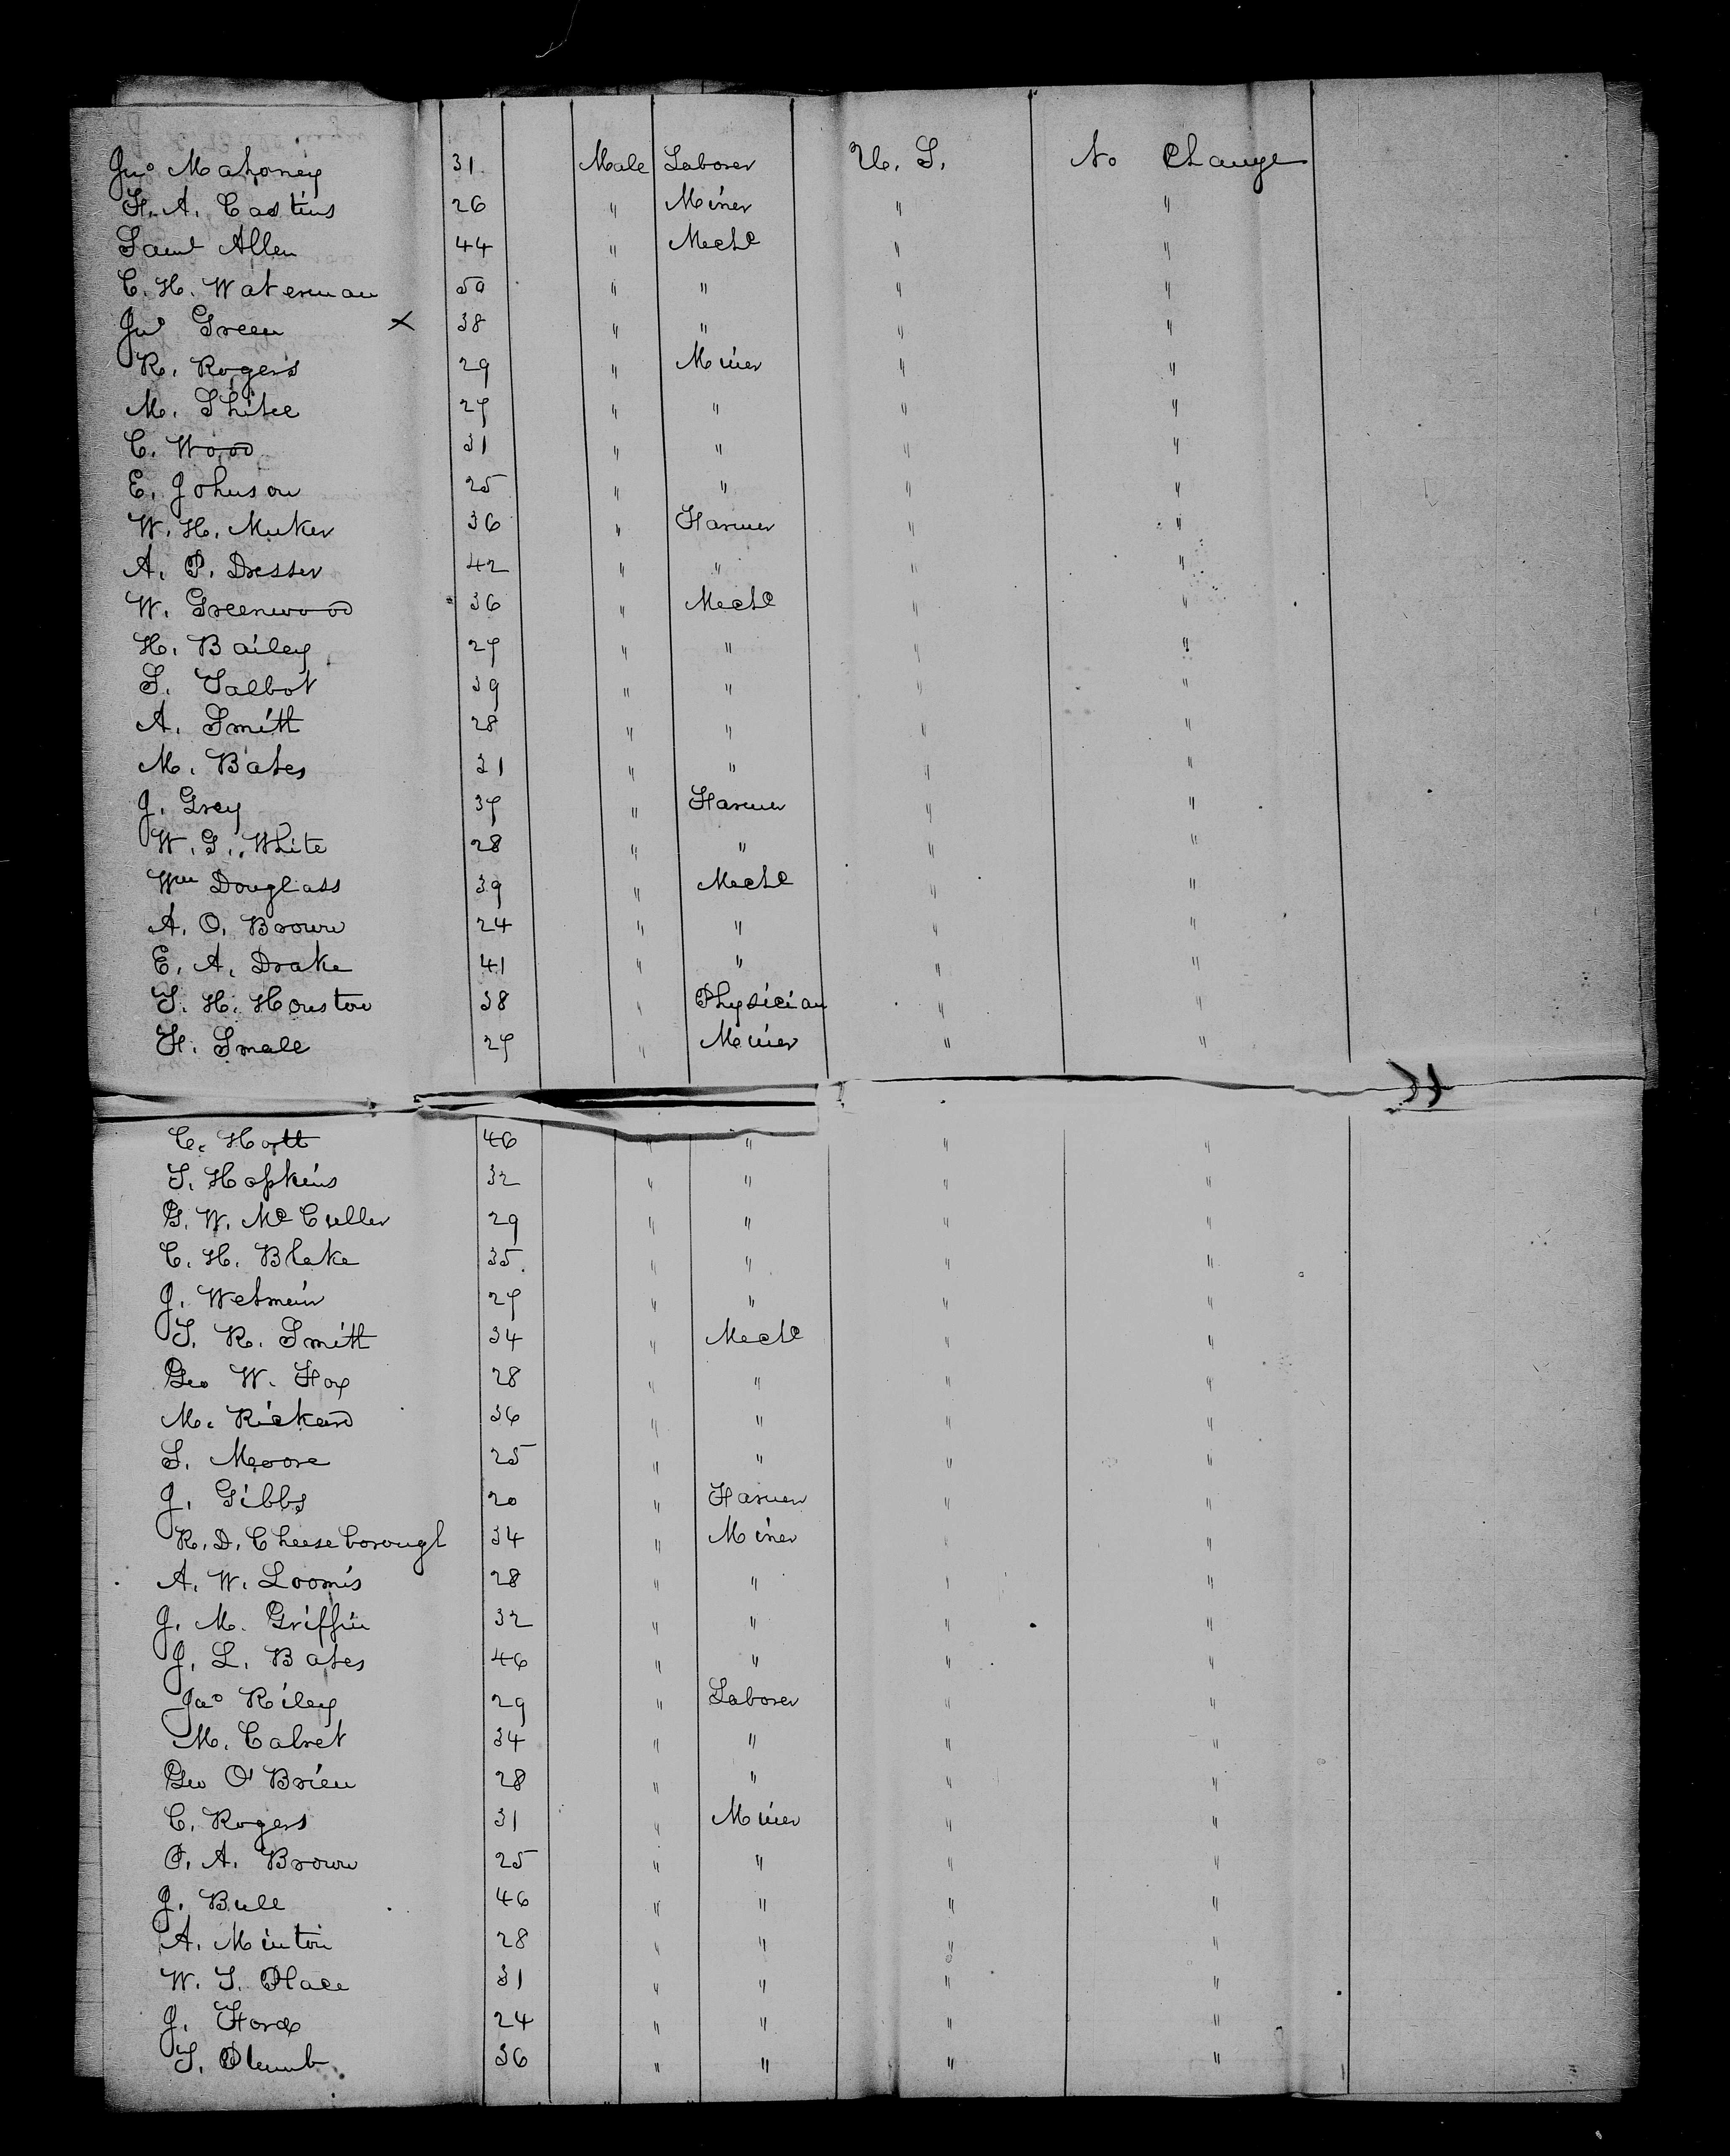 Jno Mahoney 31 Male Laborer U. S. No Change
F. A. Castins 26 " Miner " "
Saml Allen 44 " Mechc " "
C. H. Waterman 50 " " " "
Jno Green x 38 " " " "
R. Rogers 29 " Miner " "
M. Shitel 27 " " " "
C. Wood 31 " " " "
E. Johnson 25 " " " "
W. H. Muker 36 " Farmer " "
A. P. Dresser 42 " " " "
W. Greenwood 36 " Mechc " "
H. Bailey 27 " " " "
S. Talbot 39 " " " "
A. Smith 28 " " " "
M. Bates 31 " " " "
J. Grey 37 " Farmer " "
W. G. White 28 " " " "
Wm Douglass 39 " Mechc " "
A. O. Brown 24 " " " "
E. A. Drake 41 " " " "
T. H. Houston 38 " Physician " "
F. Small 27 " Miner " "
C. Hott 46 " " " "
T. Hopkins 32 " " " "
G. W. McCuller 29 " " " "
C. H. Blake 35 " " " "
J. Wetmein 27 " " " "
T. R. Smith 34 " Mechc " "
Geo W. Fox 28 " " " "
M. Rickard 36 " " " "
S. Moore 25 " " " "
J. Gibbs 20 " Farmer " "
R. D. Cheeseborough 34 " Miner " "
A. W. Loomis 28 " " " "
J. M. Griffin 32 " " " "
J. L. Bates 46 " " " "
Jas Riley 29 " Laborer " "
M. Calvet 34 " " " "
Geo O'Brien 28 " " " "
C. Rogers 31 " Miner " "
O. A. Brown 25 " " " "
J. Bull 46 " " " "
A. Minton 28 " " " "
W. T. Place 31 " " " "
J. Ford 24 " " " "
T. Plumb 36 " " " "